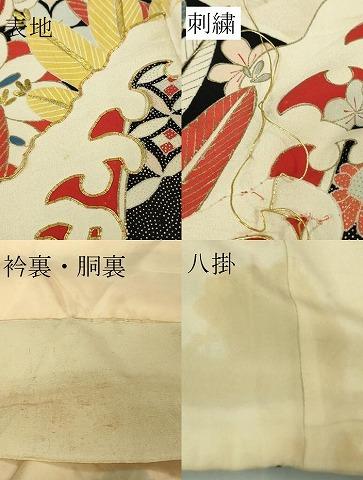 表地
刺繍
衿裏・胴裏
八掛